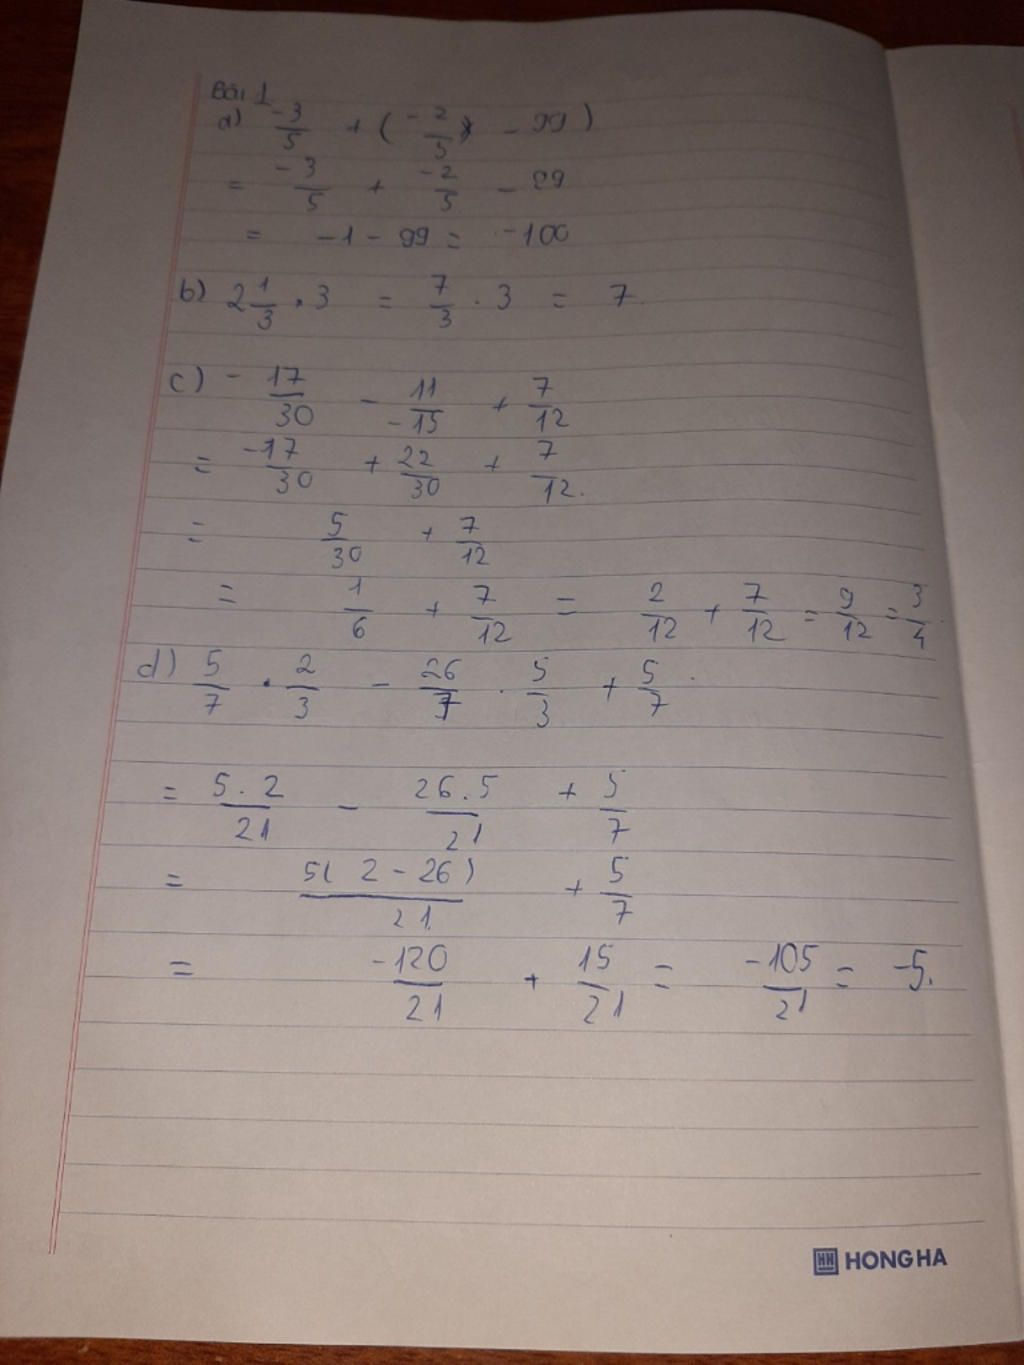 Bài 1
a) -3/5 + ( -2/5 - 99 )
= -3/5 + -2/5 - 99
= -1 - 99 = -100
b) 2 1/3 . 3 = 7/3 . 3 = 7.
c) - 17/30 - 11/-15 + 7/12
= -17/30 + 22/30 + 7/12.
= 5/30 + 7/12
= 1/6 + 7/12 = 2/12 + 7/12 = 9/12 = 3/4.
d) 5/7 . 2/3 - 26/7 . 5/3 + 5/7.
= 5.2/21 - 26.5/21 + 5/7
= 5( 2 - 26 )/21. + 5/7
= -120/21 + 15/21 = -105/21 = -5.
HH HONG HA